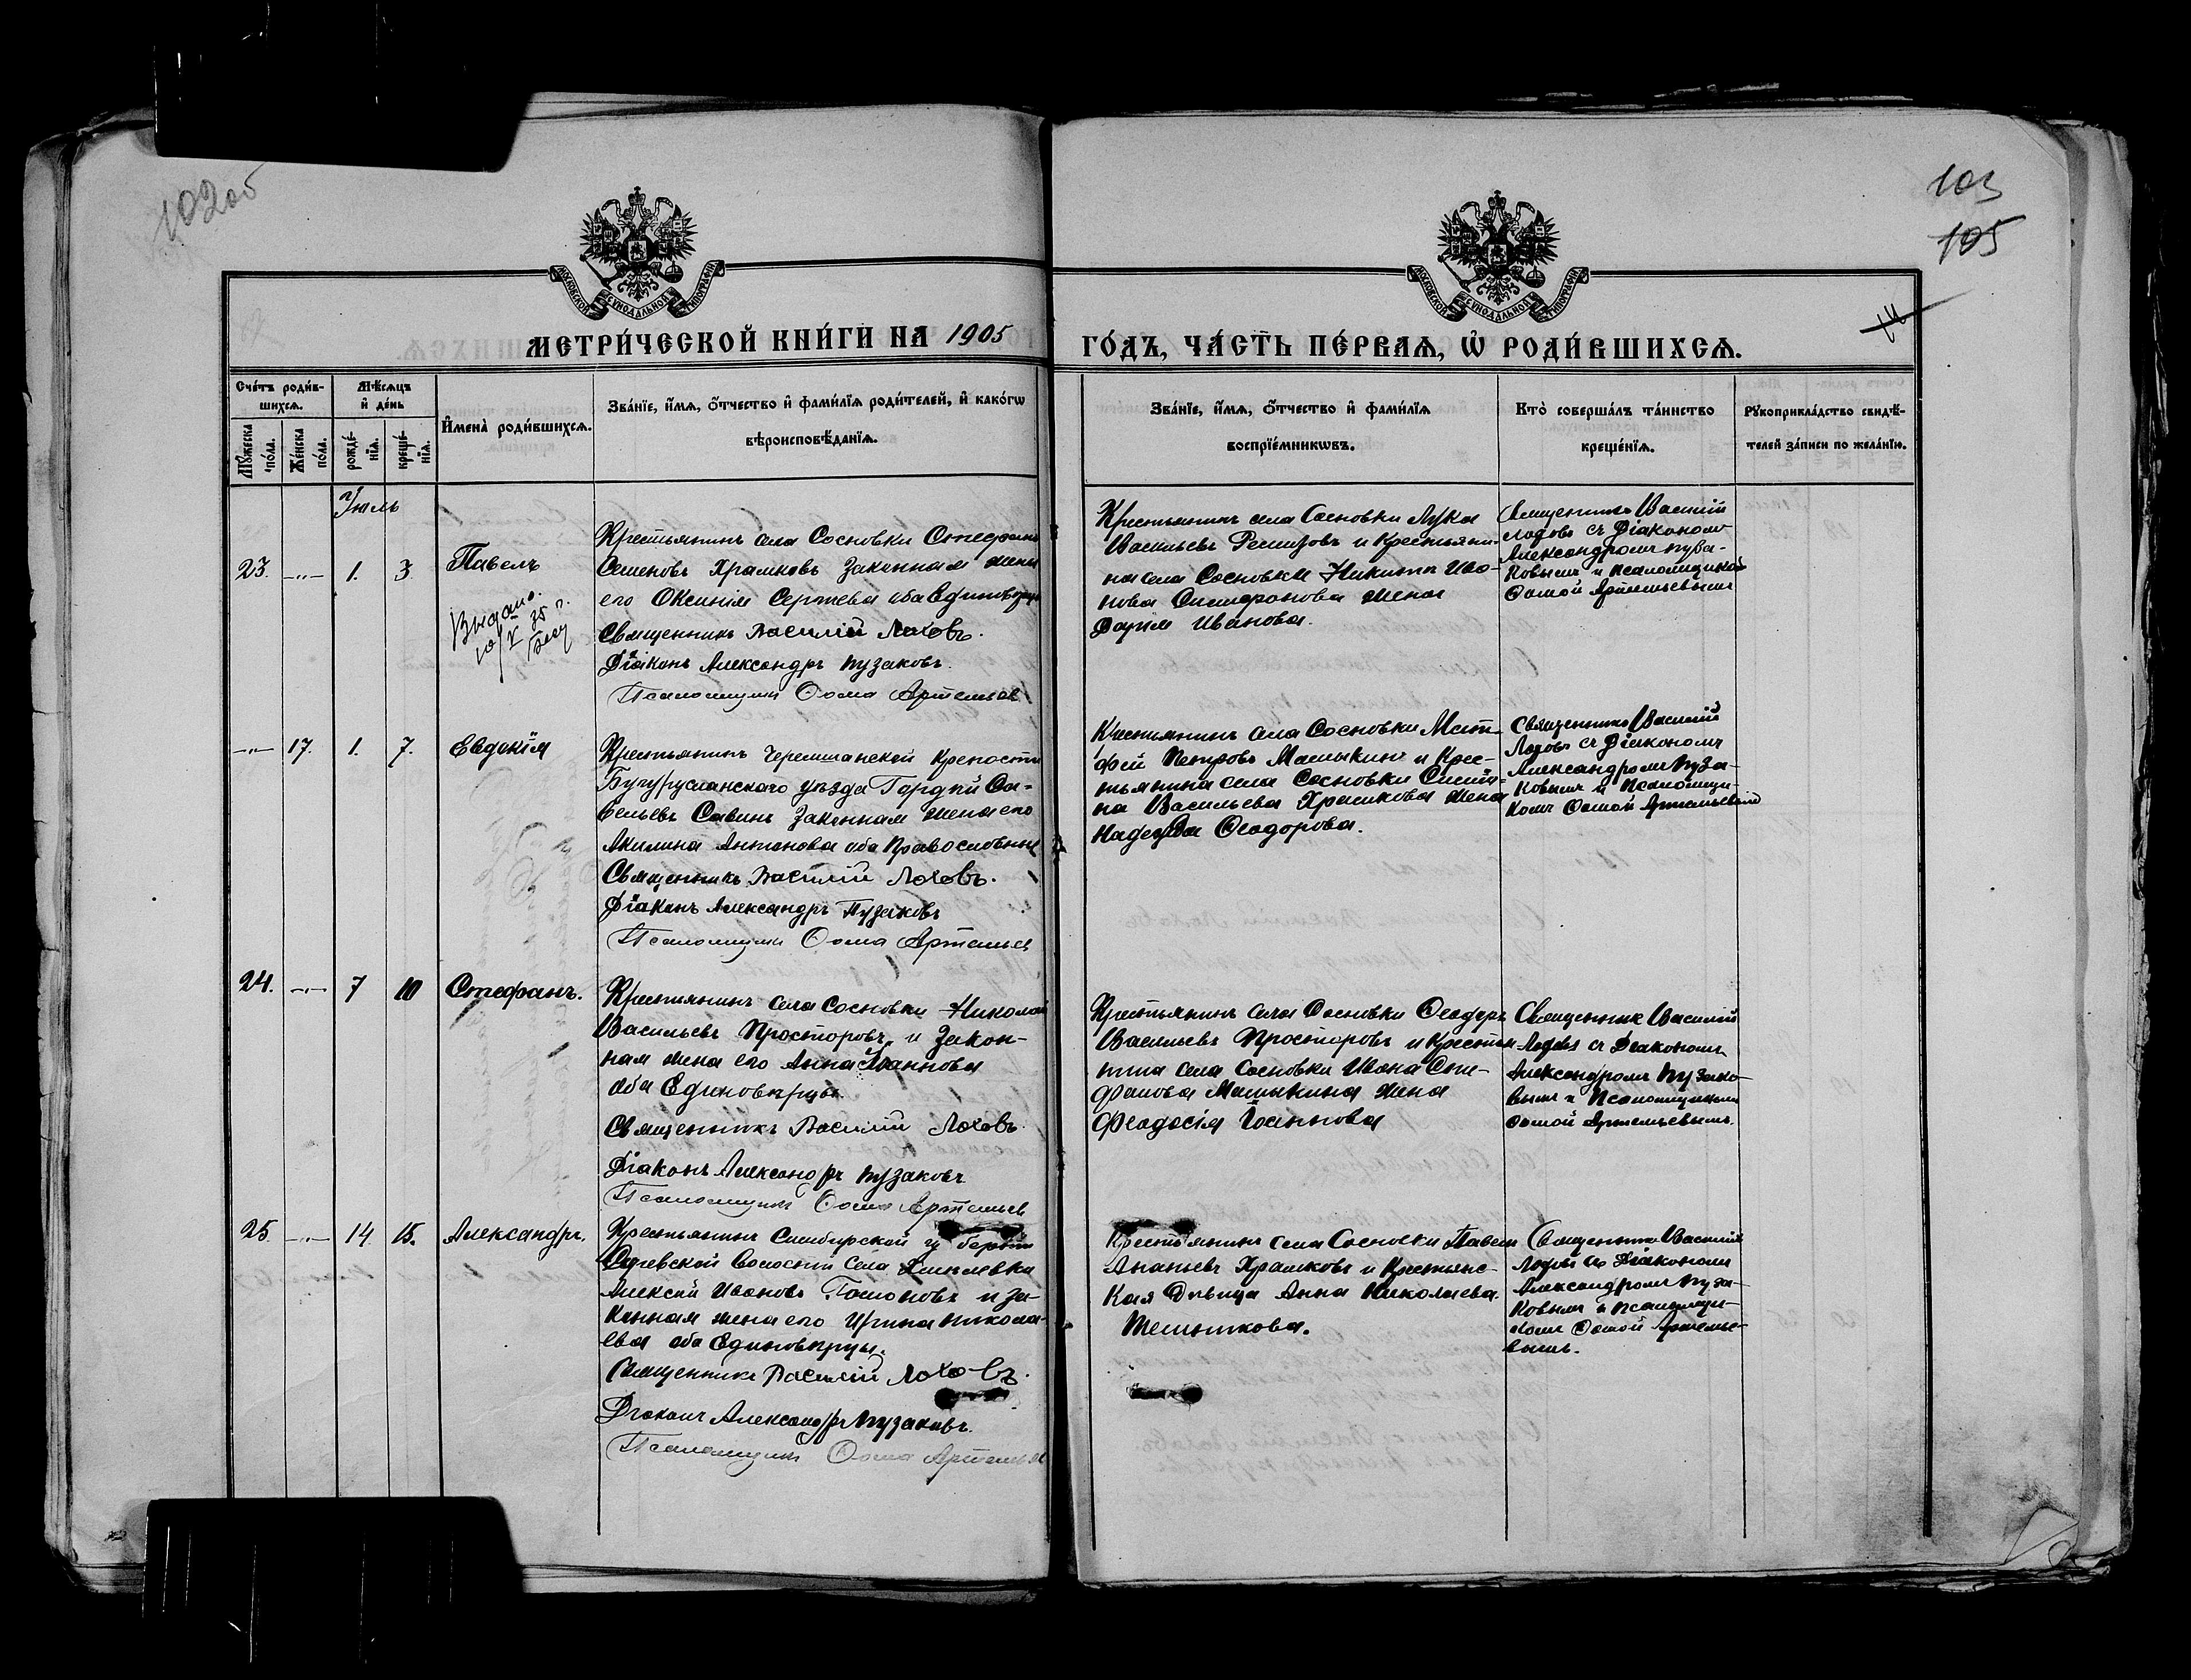 102об
103
105
МОСКОВСКОЙ СѴНОДАЛЬНОЙ ТИПОГРАФІИ
МОСКОВСКОЙ СѴНОДАЛЬНОЙ ТИПОГРАФІИ
МЕТРИ́ЧЕСКОЙ КНИ́ГИ НА 1905
ГО́ДЪ, ЧА́СТЬ ПЕ́РВАѦ, Ѡ҆ РОДИ́ВШИХСѦ.
Сче́тъ роди́в-
шихсѧ.
Мѣ́сѧцъ
и҆ де́нь
Мꙋ́жеска по́ла.
Же́нска по́ла.
рожде́-
нїѧ.
креще́-
нїѧ.
И҆мена̀ роди́вшихсѧ.
Зва́нїе, и҆́мѧ, ѻ҆́тчество и҆ фами́лїѧ роди́телей, и҆ како́гѡ
вѣроисповѣ́данїѧ.
Зва́нїе, и҆́мѧ, ѻ҆́тчество и҆ фами́лїѧ
воспрїе́мникѡвъ.
Кто̀ соверша́лъ та́инство
креще́нїѧ.
Рꙋкоприкла́дство свидѣ́-
телей за́писи по жела́нїю.
Іюль
23. —"— 1. 3 Павелъ
Выдано.
Крестьянинъ села Сосновки Стефанъ
Семеновъ Храмковъ законная жена
его Оксинія Сергѣева оба Единовѣрцы
Священникъ Василій Лоховъ.
Діаконъ Александръ Пузаковъ.
Псаломщикъ Ѳома Артемьев
Крестьянинъ села Сосновки Лука
Васильевъ Ремизовъ и крестьяни-
на села Сосновки Никиты Ива-
нова Симфронова жена
Дарья Иванова.
Священникъ Василій
Лоховъ съ Діакономъ
Александромъ Пуза-
ковымъ и псаломщикомъ
Ѳомой Артемьевымъ
—"— 17. 1. 7. Евдокія
Крестьянинъ Черемшанской крепости
Бугурусланскаго уѣзда Гордѣй Са-
вельевъ Савинъ законная жена его
Акилина Антонова оба Православные
Священникъ Василій Лоховъ.
Діаконъ Александръ Пузаковъ
Псаломщикъ Ѳома Артемьев
Крестьянинъ села Сосновки Мат-
фей Петровъ Малыкинъ и Крес-
тьянина села Сосновки
на Васильева Храмкова жена
Надежда Ѳеодорова.
Священникъ Василій
Лоховъ съ Діакономъ
Александромъ Пуза-
ковымъ и Псаломщи-
комъ Ѳомой Артемьевымъ
24. —"— 7 10 Стефанъ.
Крестьянинъ села Сосновки Николай
Васильевъ Просторовъ и закон-
ная жена его Анна Іоаннова
оба Единовѣрцы.
Священникъ Василій Лоховъ.
Діаконъ Александръ Пузаковъ
Псаломщикъ Ѳома Артемьев
Крестьянинъ села Сосновки Ѳеодоръ
Васильевъ Просторовъ и Крестья-
нина села Сосновки Ивана Сте-
фанова Малыкина жена
Феодосія Іоаннова
Священник Василій
Лоховъ съ Діакономъ
Александромъ Пузако-
вымъ и Псаломщикомъ
Ѳомой Артемьевымъ.
25 —"— 14 15. Александръ.
Крестьянинъ Симбирской губерніи
волости села
Алексѣй Ивановъ и за-
конная жена его Ирина Никола-
ева оба Единовѣрцы.
Священникъ Василій Лоховъ.
Діаконъ Александръ Пузаковъ.
Псаломщикъ Ѳома Артемьев
Крестьянинъ села Сосновки Павелъ
Ананьевъ Храмковъ и Крестьянс-
кая дѣвица Анна Николаева
Священникъ Василій
Лоховъ съ Діакономъ
Александромъ Пуза-
ковымъ и псаломщи-
комъ Ѳомой Артемье-
вымъ.